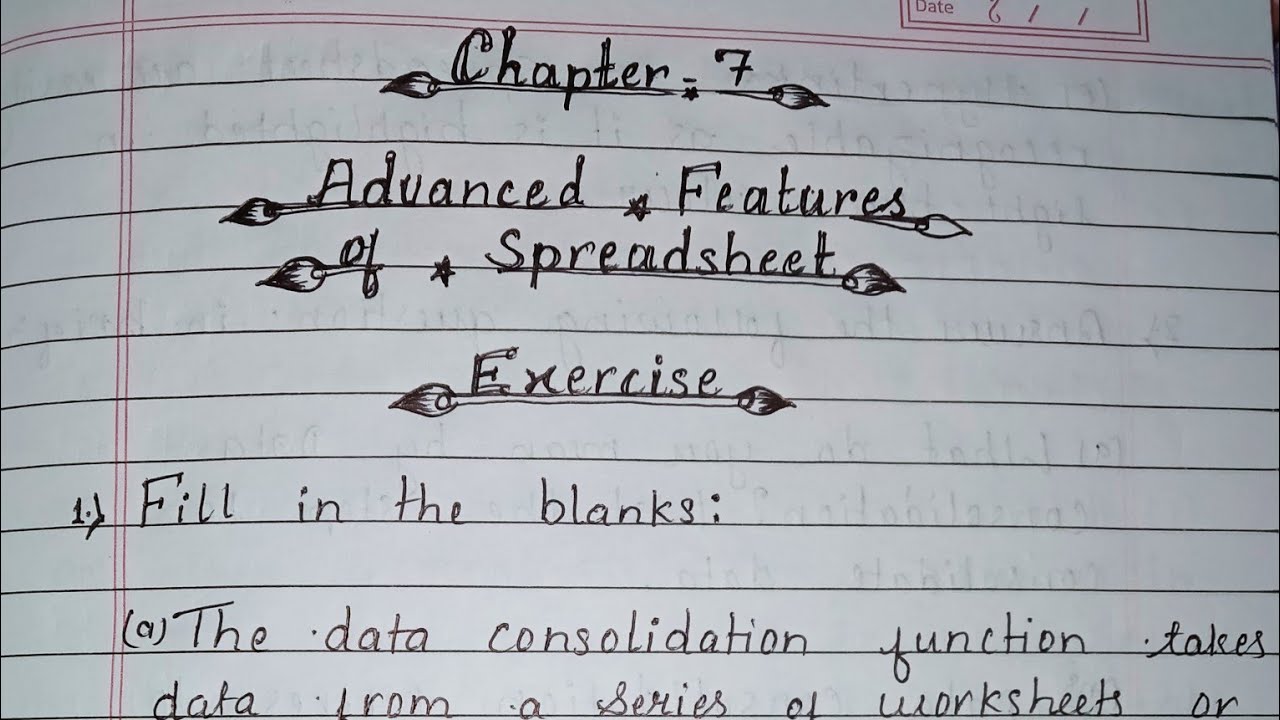 Date / /
Chapter - 7
Advanced Features
of Spreadsheet
Exercise
1.) Fill in the blanks:
(a) The data consolidation function takes
data from a series of worksheets or